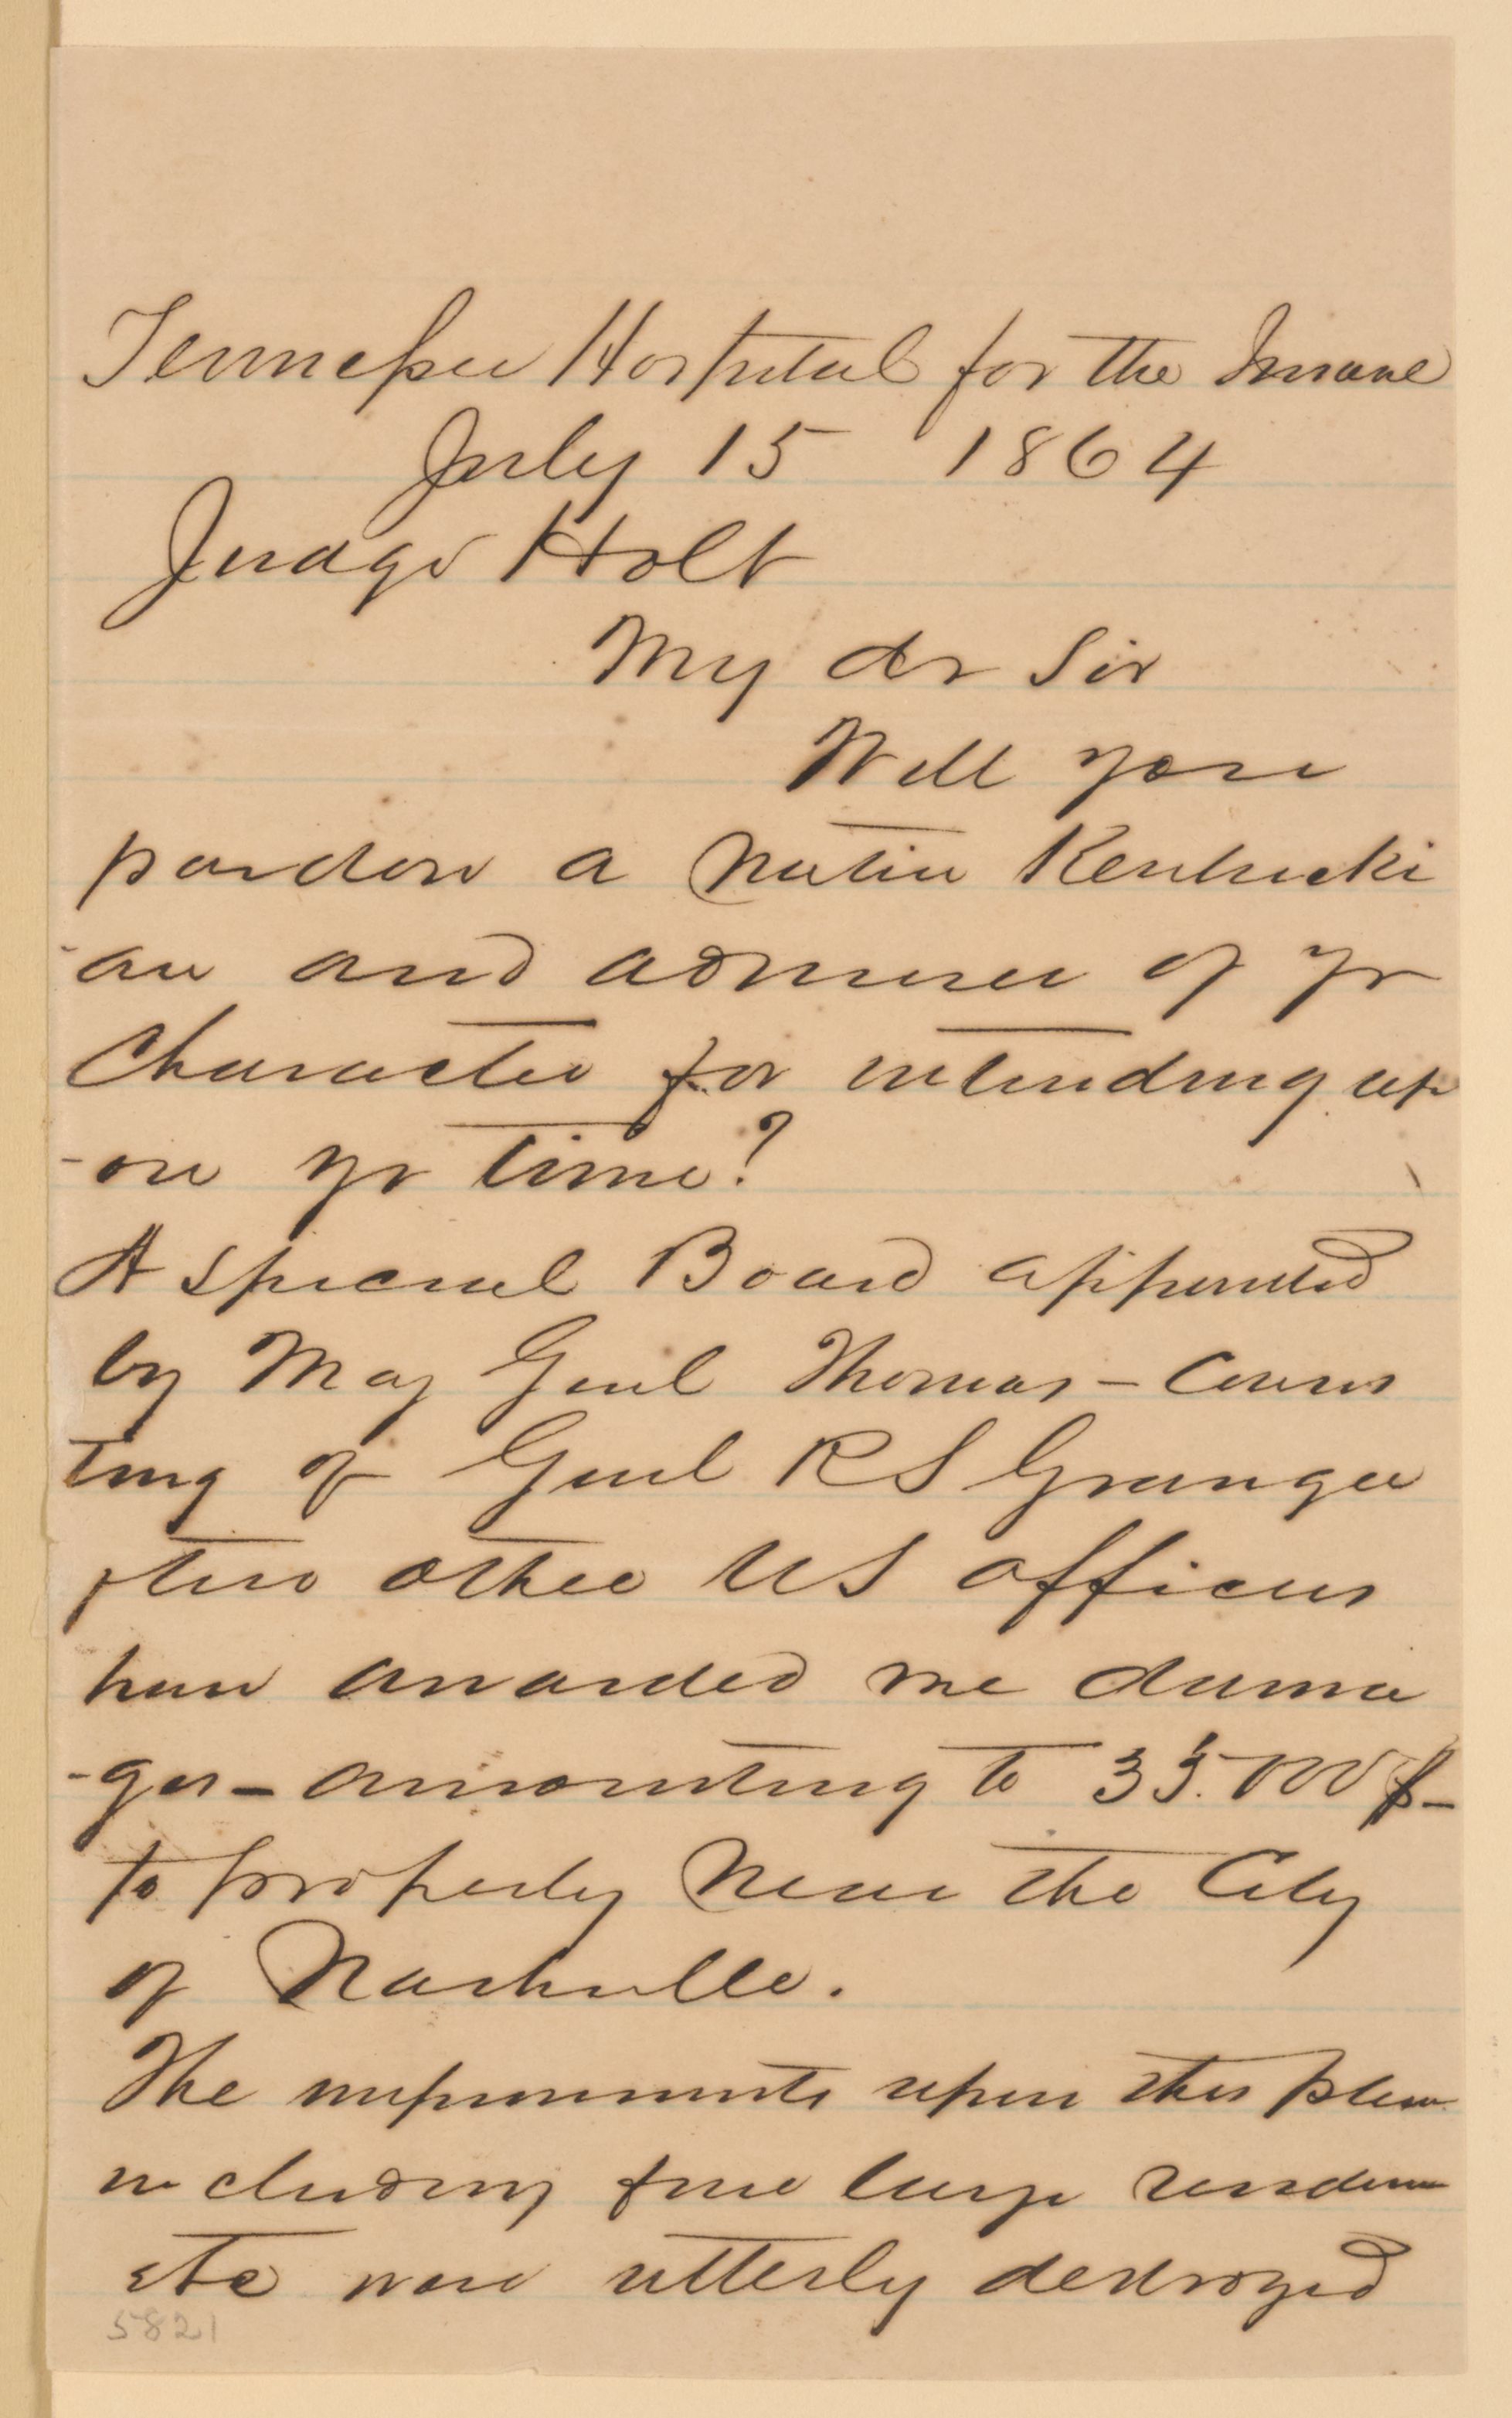 Tennessee Hospital for the Insane
July 15 1864
Judge Holt
My dr Sir
Will you
pardon a native Kentucki
-an and admirer of yr
Character for intruding up
-on yr time?
A special Board appointed
by Maj Genl Thomas - Consis
ting of Genl R S Granger
& two other US officers
have awarded me dama
-ges - amounting to 35.000 $ -
to property near the City
of Nashville.
The improvements upon this place
including fine large residence
etc were utterly destroyed
5821